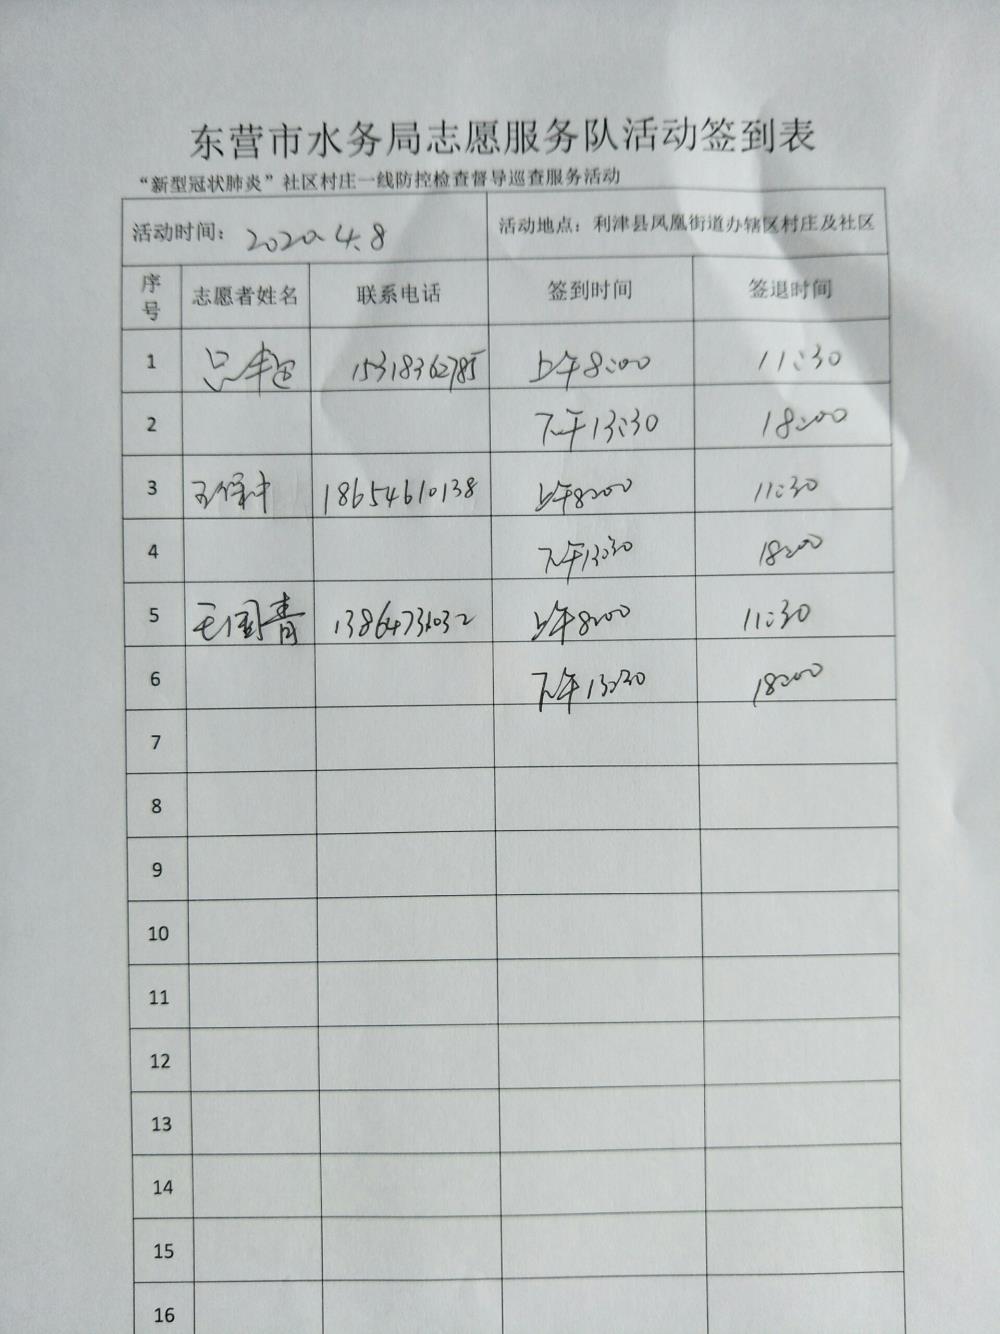 东营市水务局志愿服务队活动签到表
“新型冠状肺炎”社区村庄一线防控检查督导巡查服务活动
活动时间：2020.4.8 活动地点：利津县凤凰街道办辖区村庄及社区
序号 志愿者姓名 联系电话 签到时间 签退时间
1 15318362785 上午8:00 11:30
2 下午13:30 18:00
3 王保中 18654610138 上午8:00 11:30
4 下午13:30 18:00
5 王国青 上午8:00 11:30
6 下午13:30 18:00
7
8
9
10
11
12
13
14
15
16